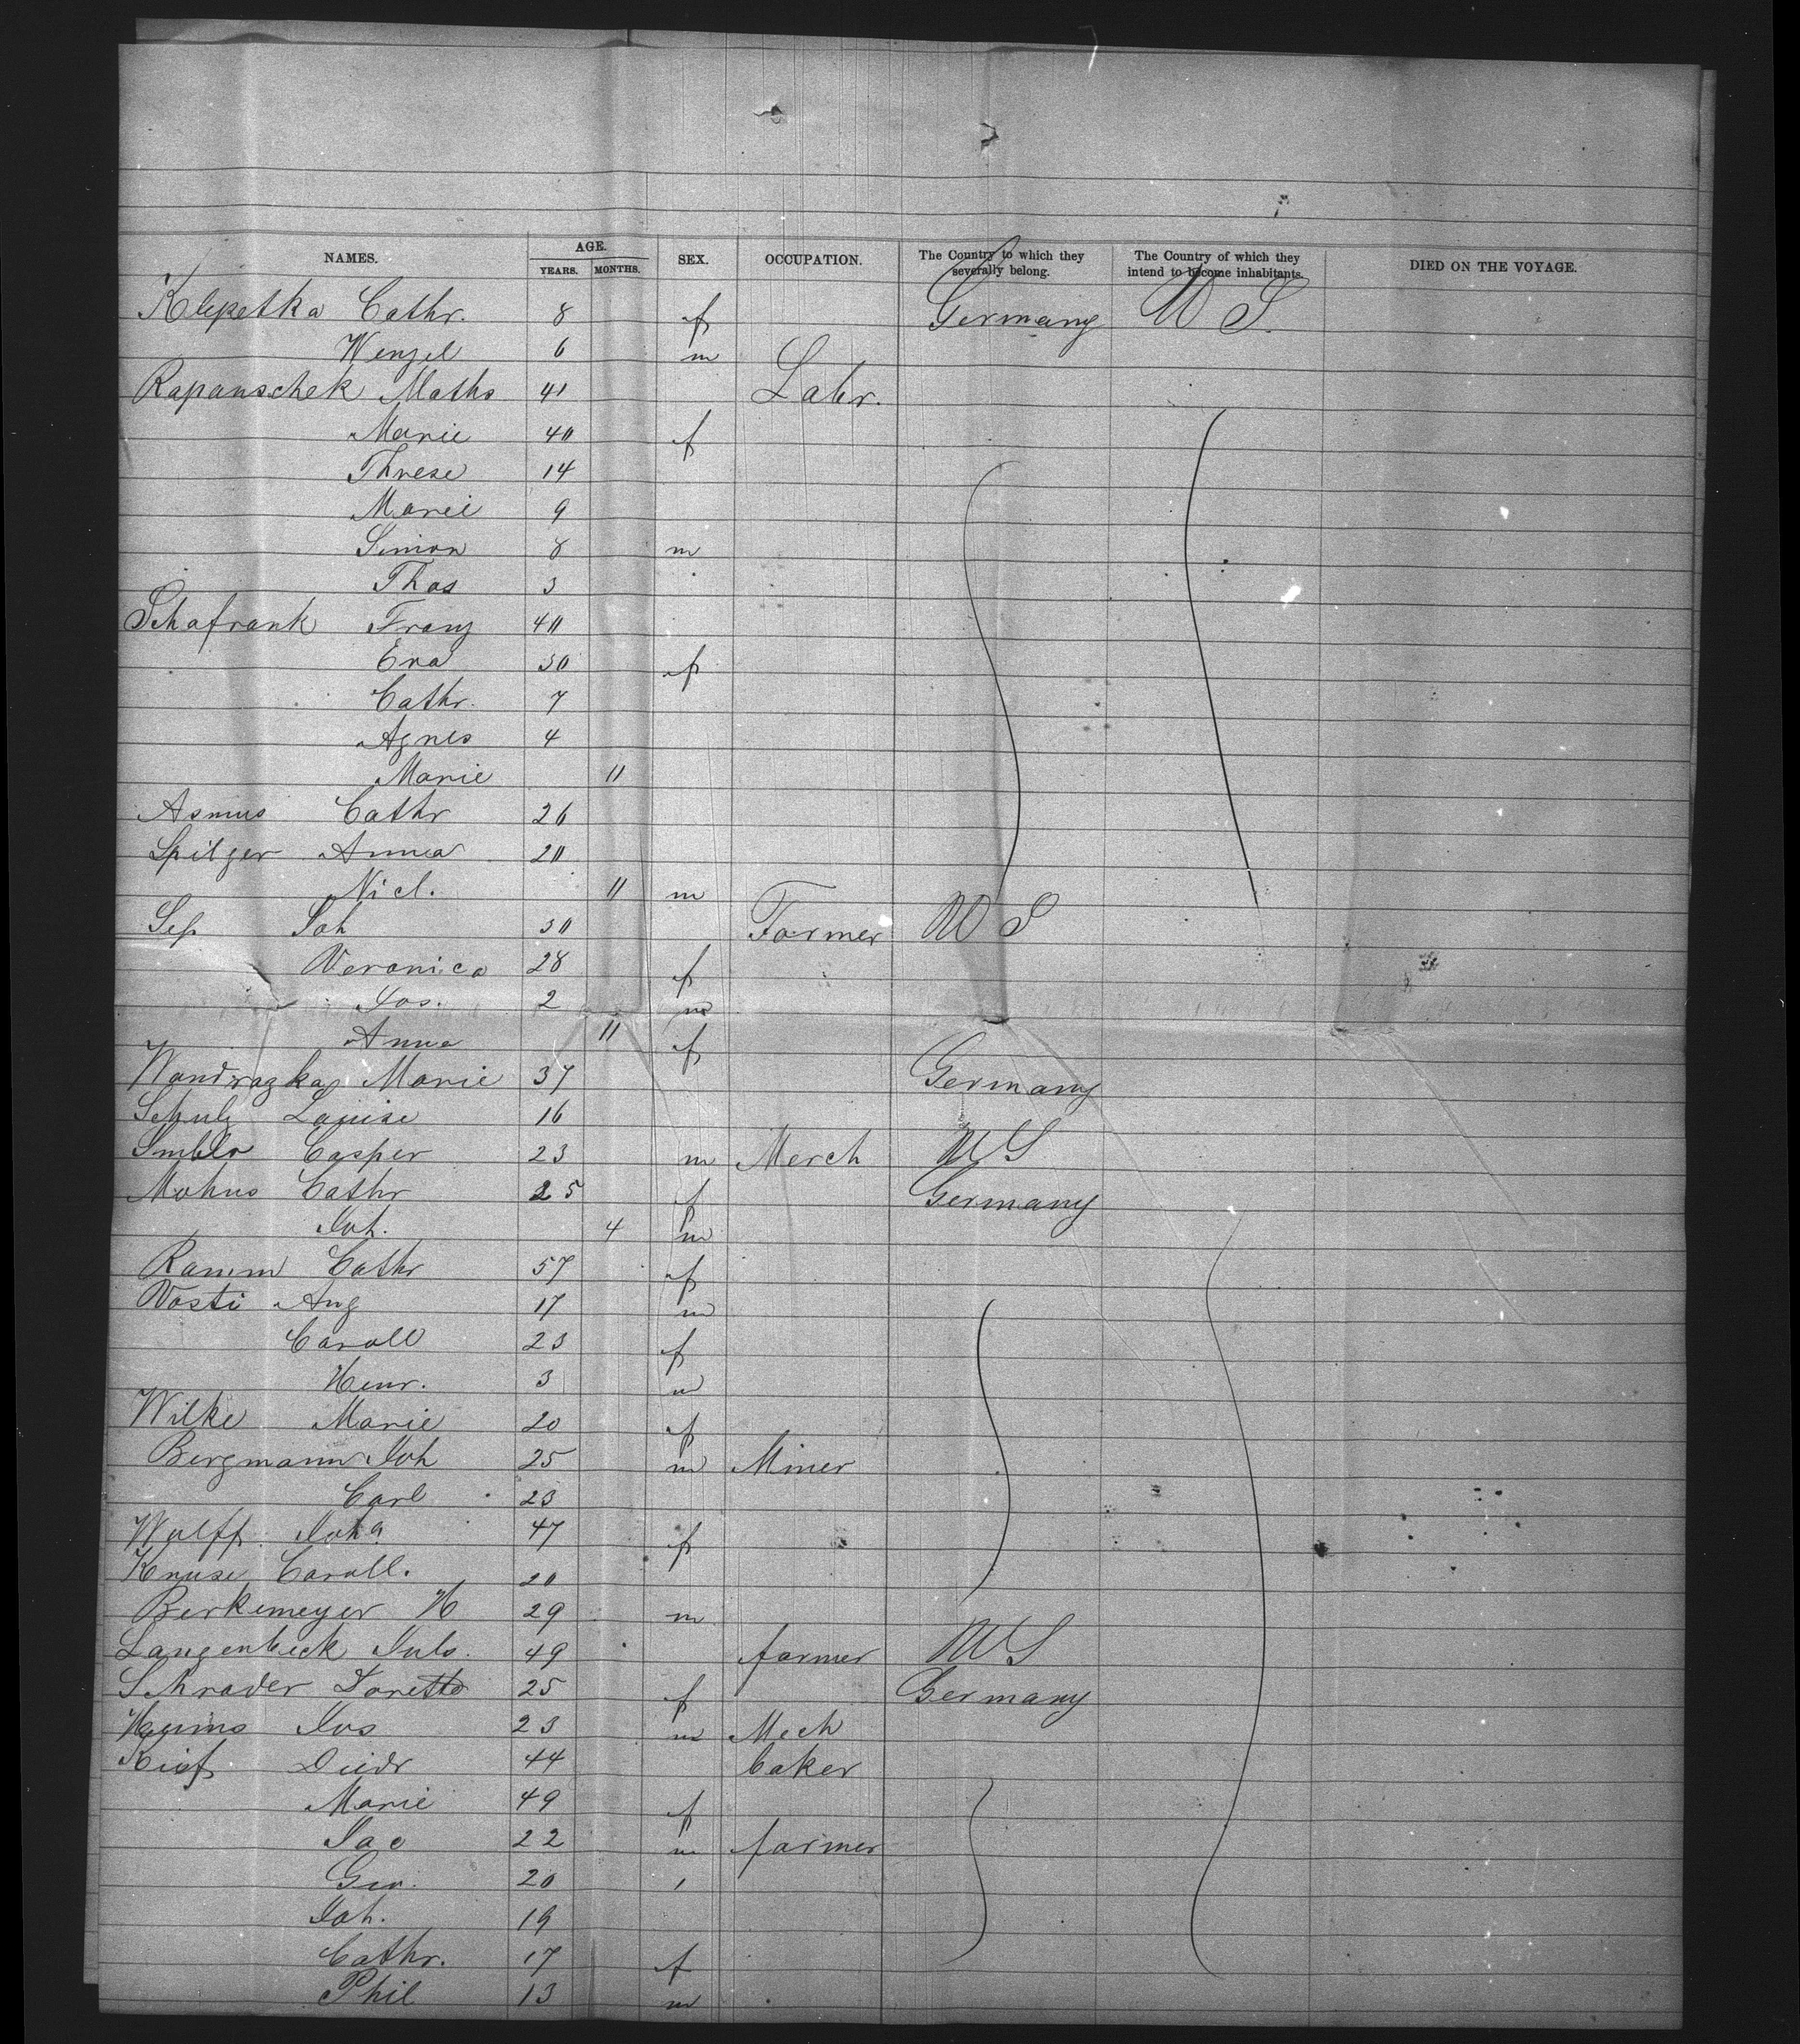 NAMES. AGE. YEARS. MONTHS. SEX. OCCUPATION. The Country to which they severally belong. The Country of which they intend to become inhabitants. DIED ON THE VOYAGE.
Klepetka Cathr. 8 f Germany U S.
Wenzel 6 m
Rapauschek Maths 41 Labr.
Marie 40 f
Threse 14
Marie 9
Simon 8 m
Thos 3
Schafrank Franz 40
Eva 30 f
Cathr. 7
Agnes 4
Marie 11
Asmus Cathr 26
Spitzer Anna 20
Nicl. 11 m
Sep Joh 30 Farmer U S
Veronica 28 f
Jos. 2 m
Anna 11 f
Wondrazka Marie 37 Germany
Schulz Louise 16
Casper 23 m Merch U S
Mohns Cathr 25 f Germany
Joh. 4 m
Ramm Cathr 57 f
Vosti Aug 17 m
Caroll 23 f
Henr. 3 m
Wilke Marie 20 f
Bergmann Joh 25 m Miner
Carl 23
Wulff Joha 47 f
Knuse Caroll. 20
Berkemeyer H 29 m
Langenbeck Juls. 49 farmer U S
Schrader Doretto 25 f Germany
Jos 23 m Mech
Diedr 44 baker
Marie 49 f
Jac 22 m farmer
Geo. 20
Joh. 19
Cathr. 17 f
Phil 13 m